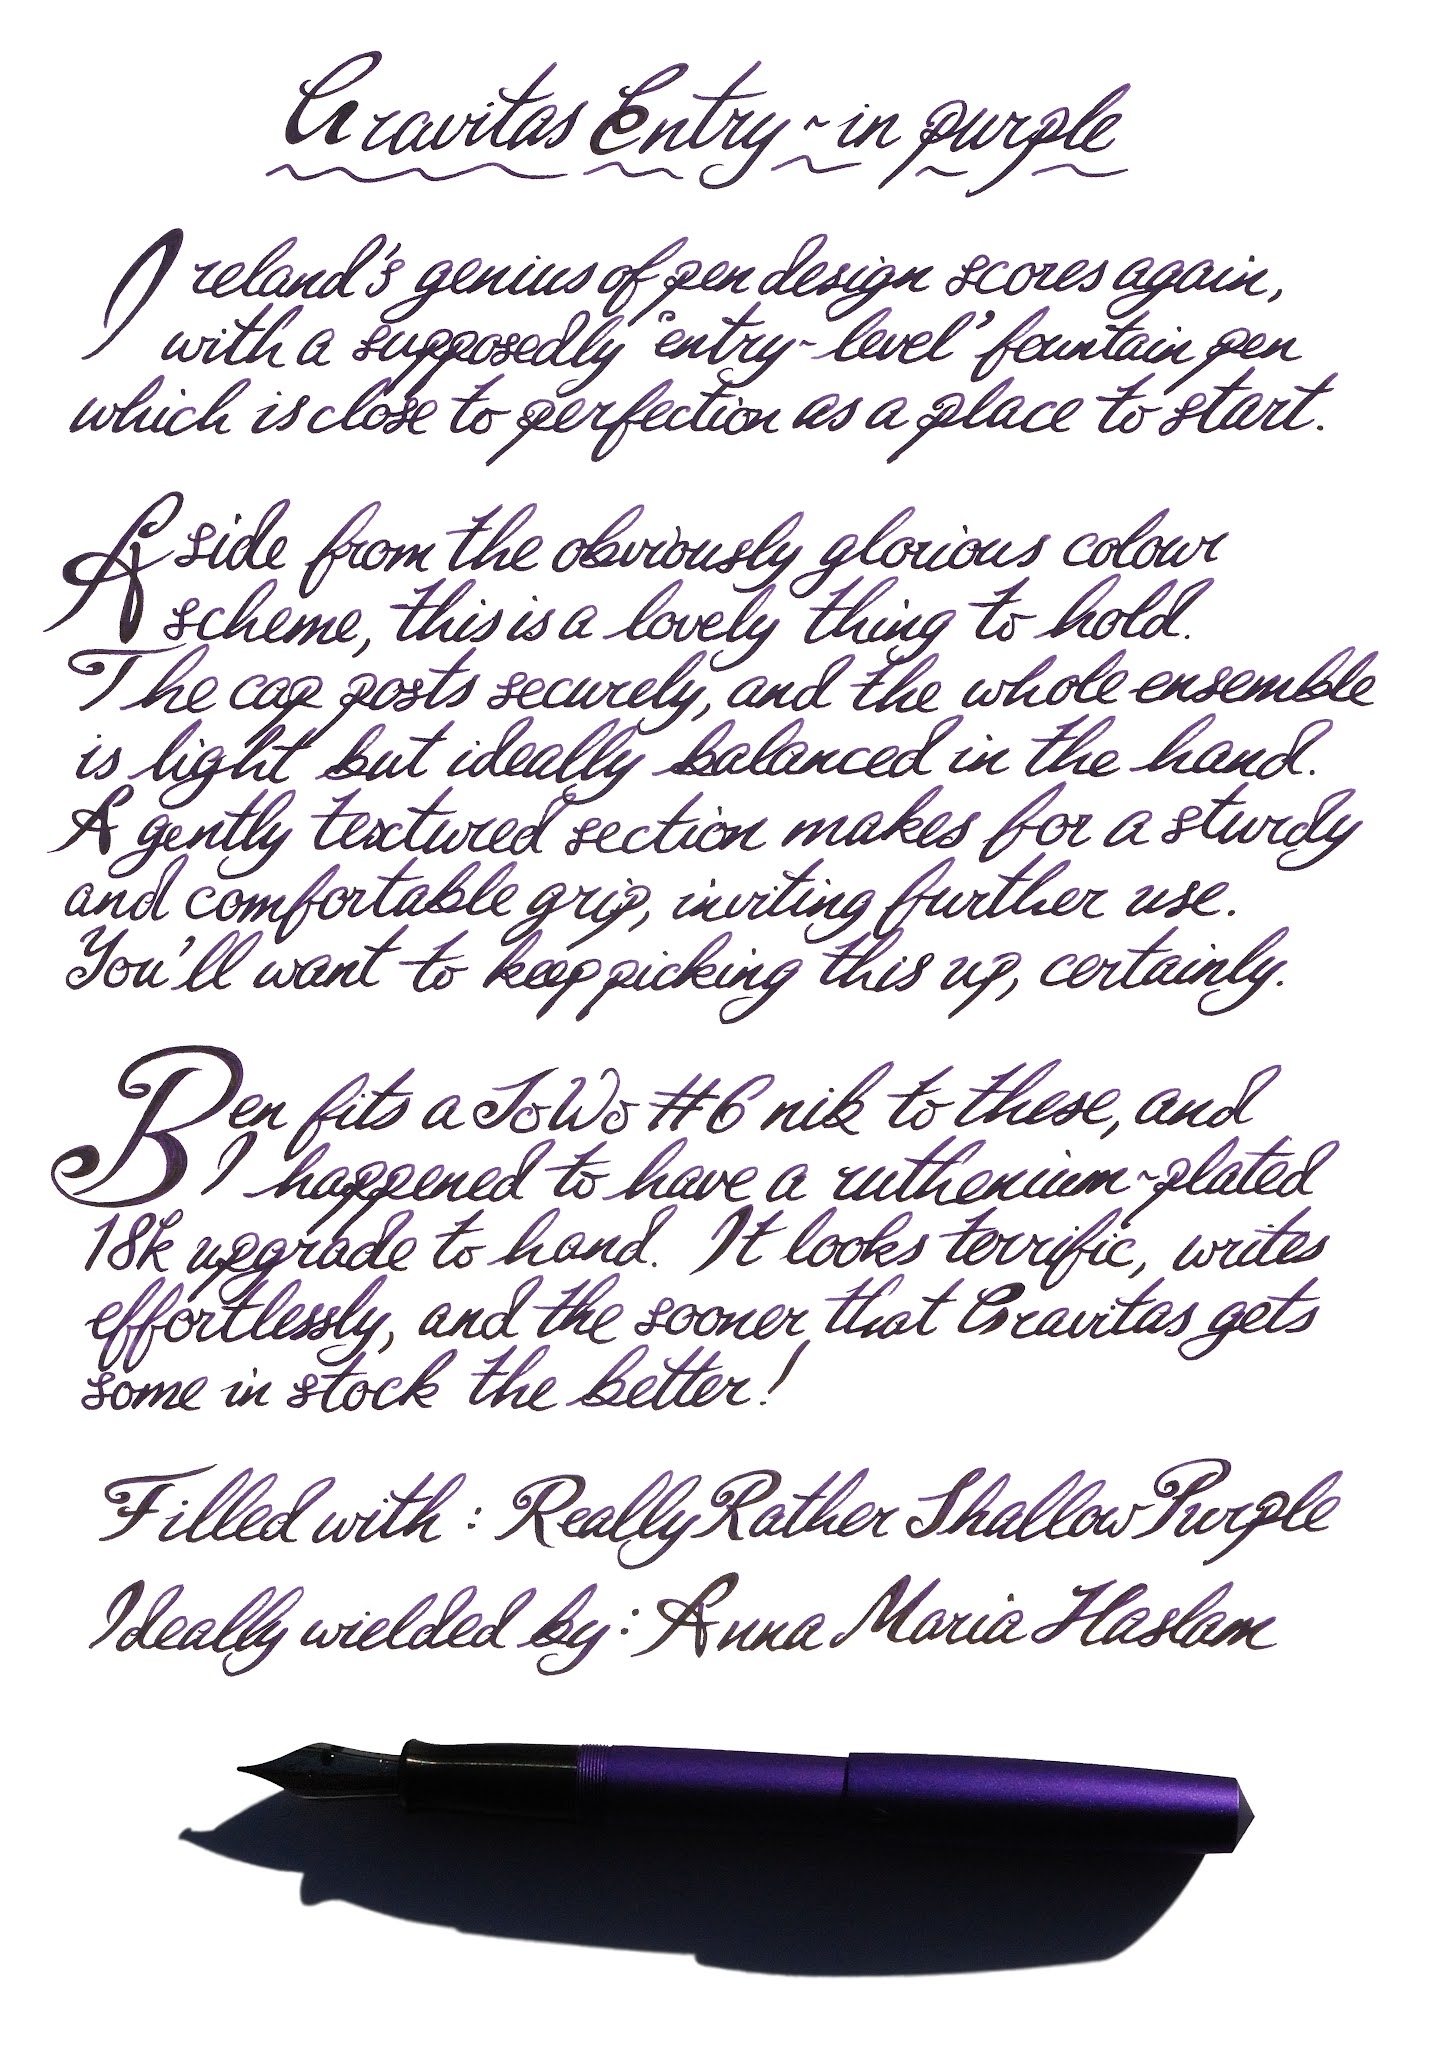 Gravitas Entry ~ in purple
Ireland's genius of pen design scores again,
with a supposedly 'entry-level' fountain pen
which is close to perfection as a place to start.
Aside from the obviously glorious colour
scheme, this is a lovely thing to hold.
The cap posts securely, and the whole ensemble
is light but ideally balanced in the hand.
A gently textured section makes for a sturdy
and comfortable grip, inviting further use.
You'll want to keep picking this up, certainly.
Ben fits a JoWo #6 nib to these, and
I happened to have a ruthenium-plated
18k upgrade to hand. It looks terrific, writes
effortlessly, and the sooner that Gravitas gets
some in stock the better!
Filled with: Really Rather Shallow Purple
Ideally wielded by: Anna Maria Haslam